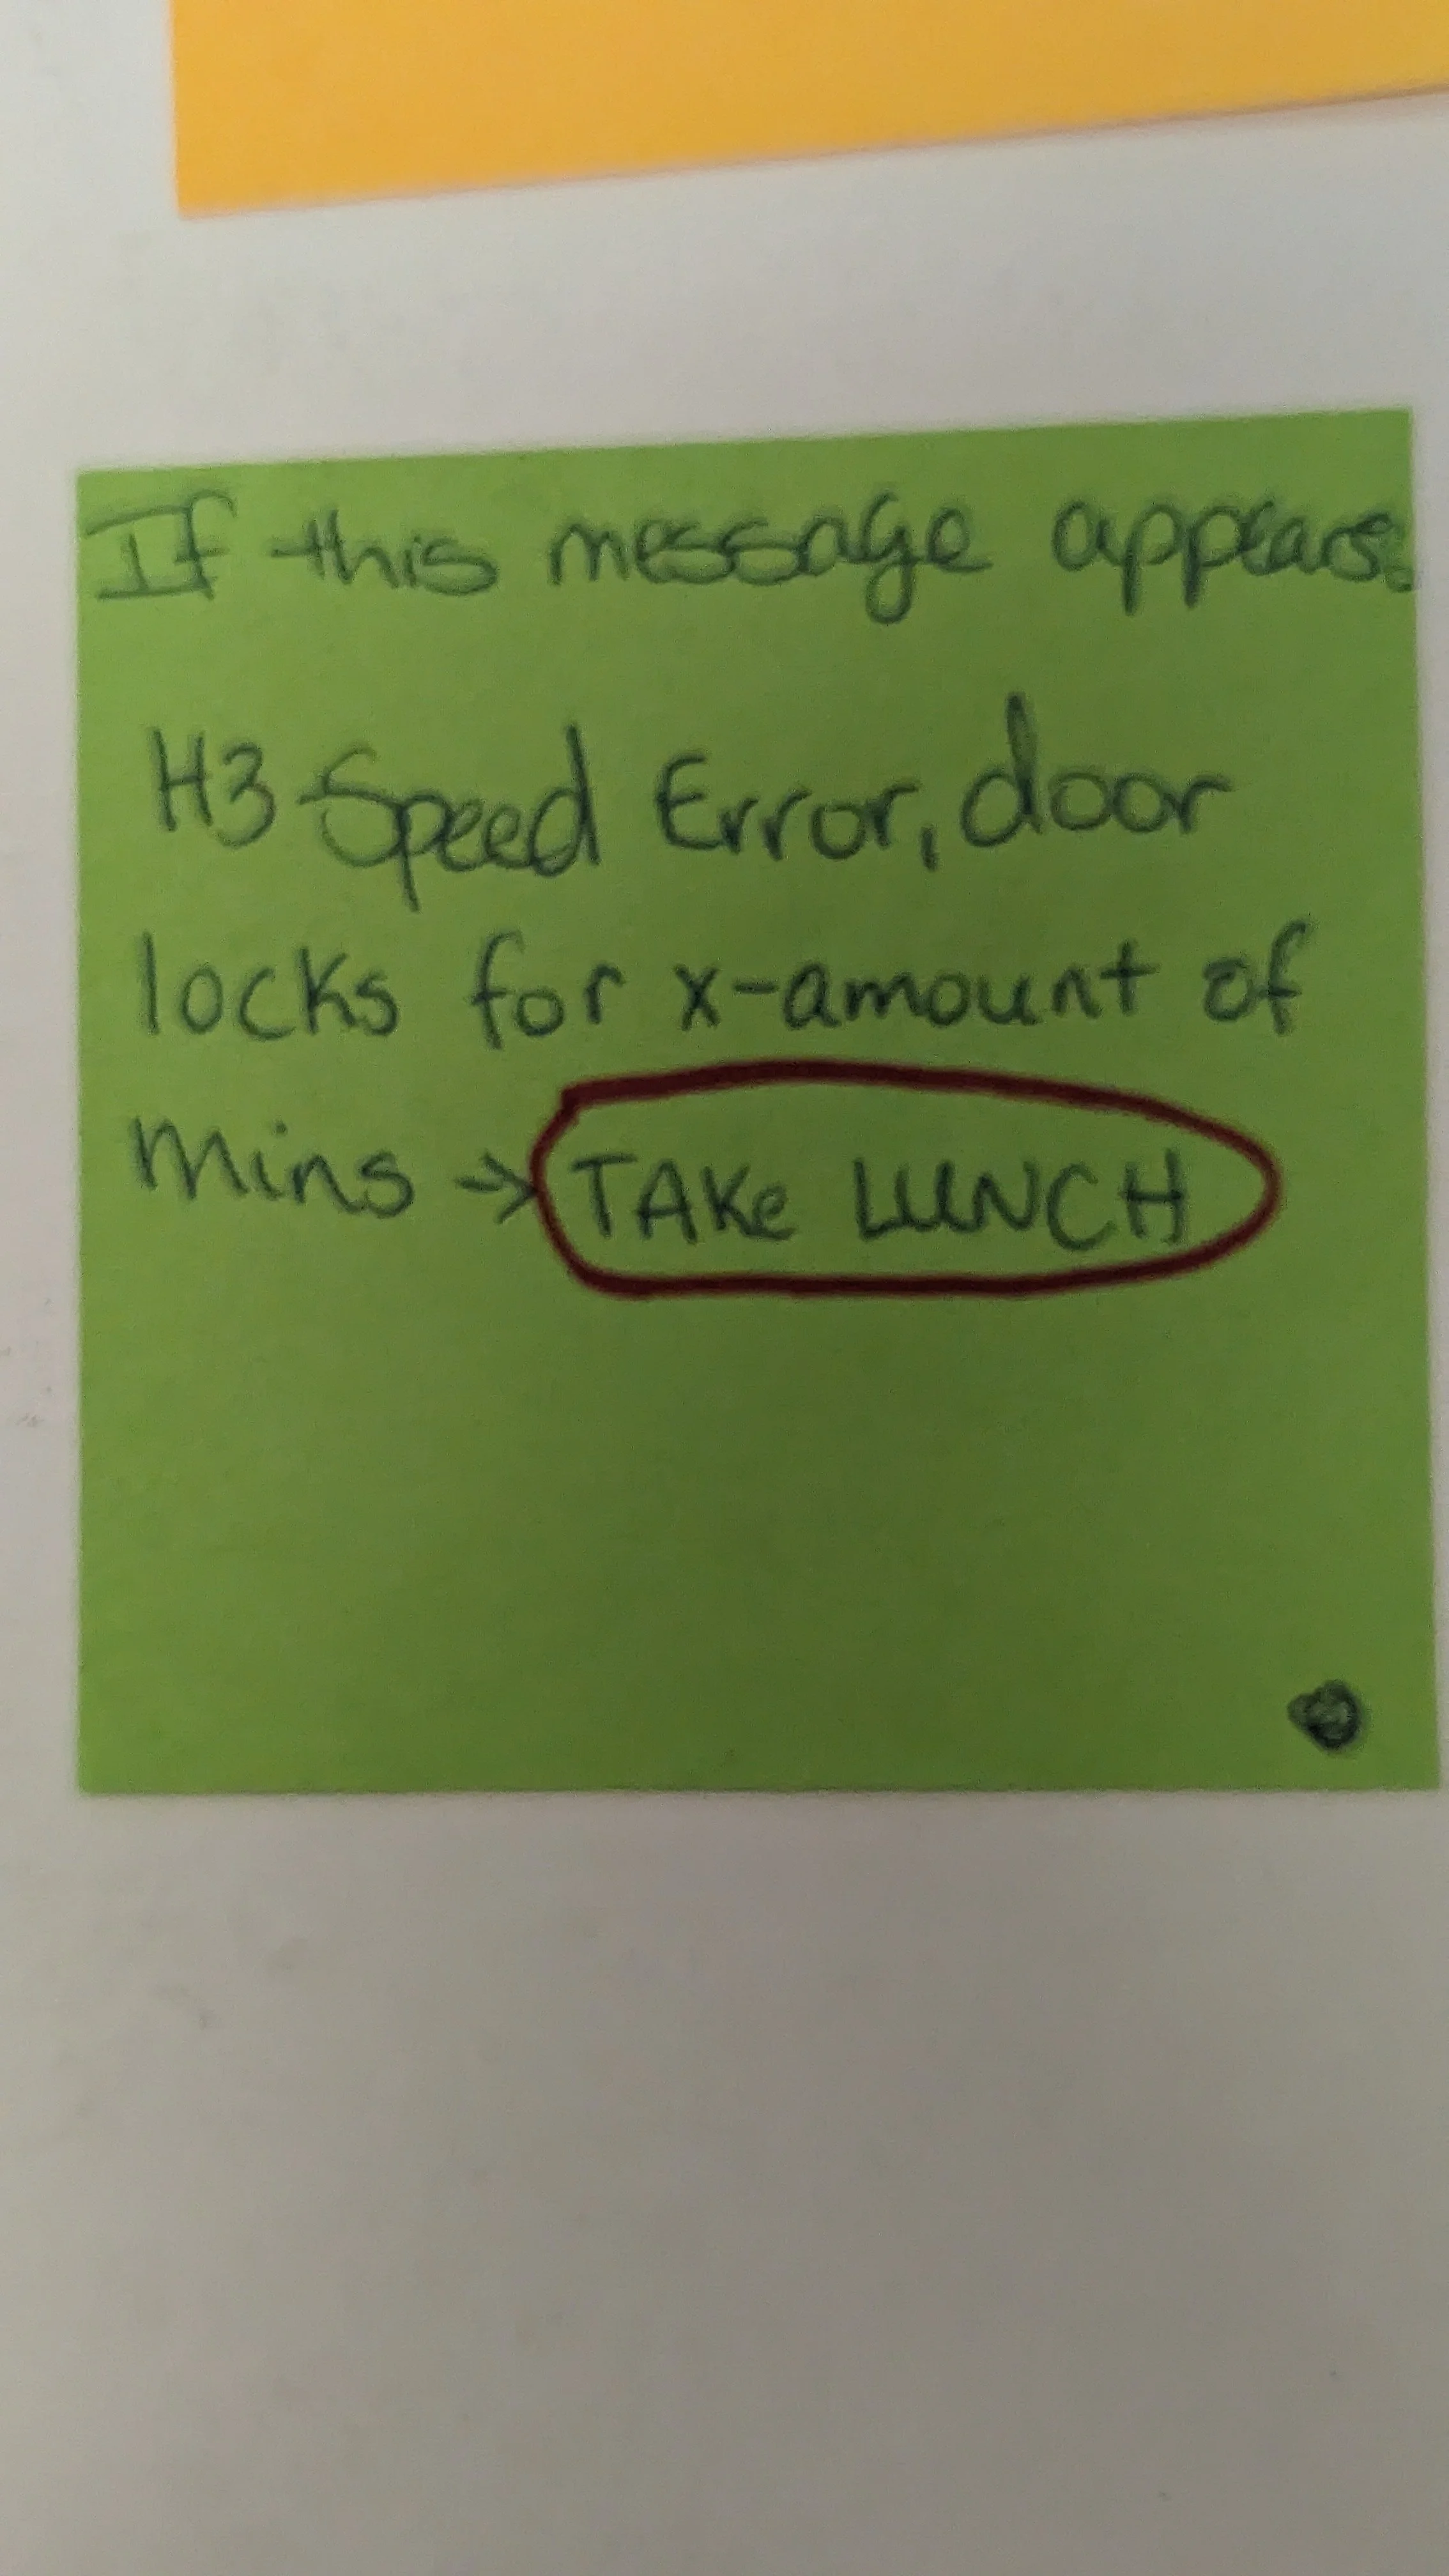 If this message appears:
H3 Speed Error, door
locks for x-amount of
mins → TAKe LUNCH